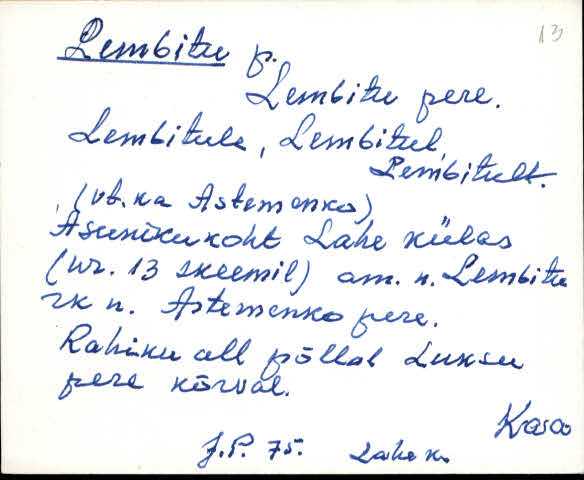 13
Lembitu p.
Lembitu pere.
Lembitule, Lembitul,
Lembitult.
(vt. ka Astemenko)
Asunikukoht Lahe külas
(nr. 13 skeemil) am. n. Lembitu
rk n. Astemenko pere.
Rahniku all põllal Luksu
pere kõrval.
Kasa
J.P. 75. Lahe k.